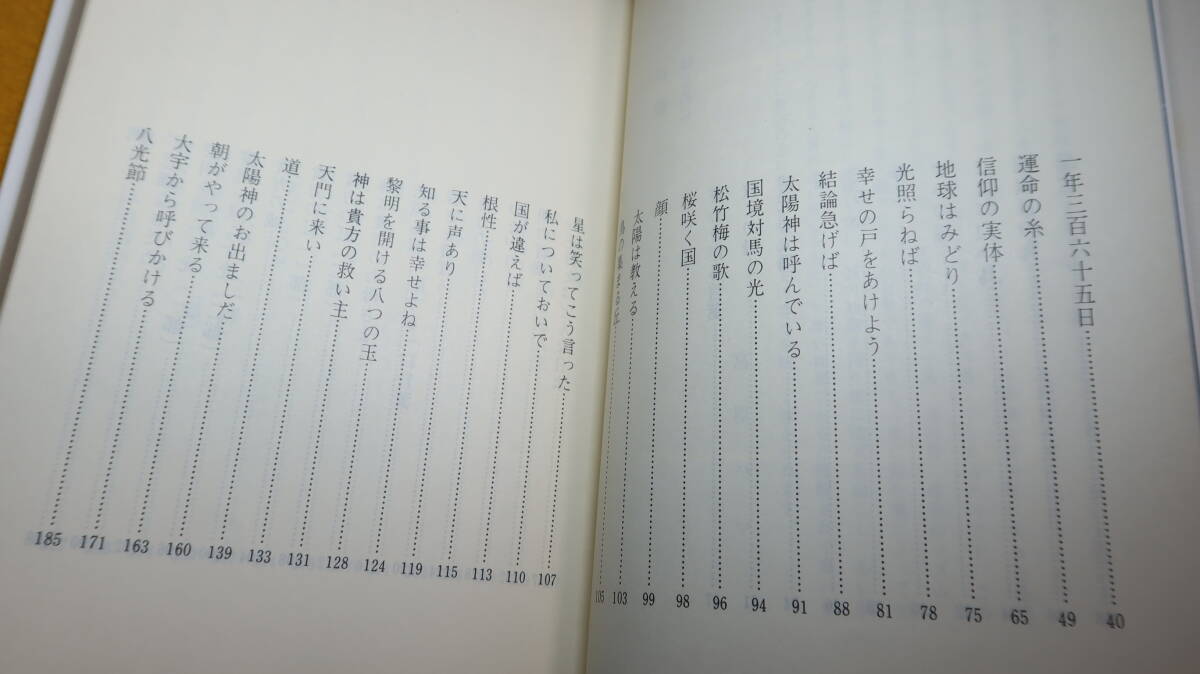 一年三百六十五日……40
運命の糸……49
信仰の実体……65
地球はみどり……75
光照らねば……78
幸せの戸をあけよう……81
結論急げば……88
太陽神は呼んでいる……91
国境対馬の光……94
松竹梅の歌……96
桜咲く国……98
顔……99
太陽は教える……103
……105
星は笑ってこう言った……107
私についておいで……110
国が違えば……113
根性……115
天に声あり……119
知る事は幸せよね……124
黎明を開ける八つの玉……128
神は貴方の救い主……131
天門に来い……133
道……139
太陽神のお出ましだ……160
朝がやって来る……163
大宇から呼びかける……171
八光節……185